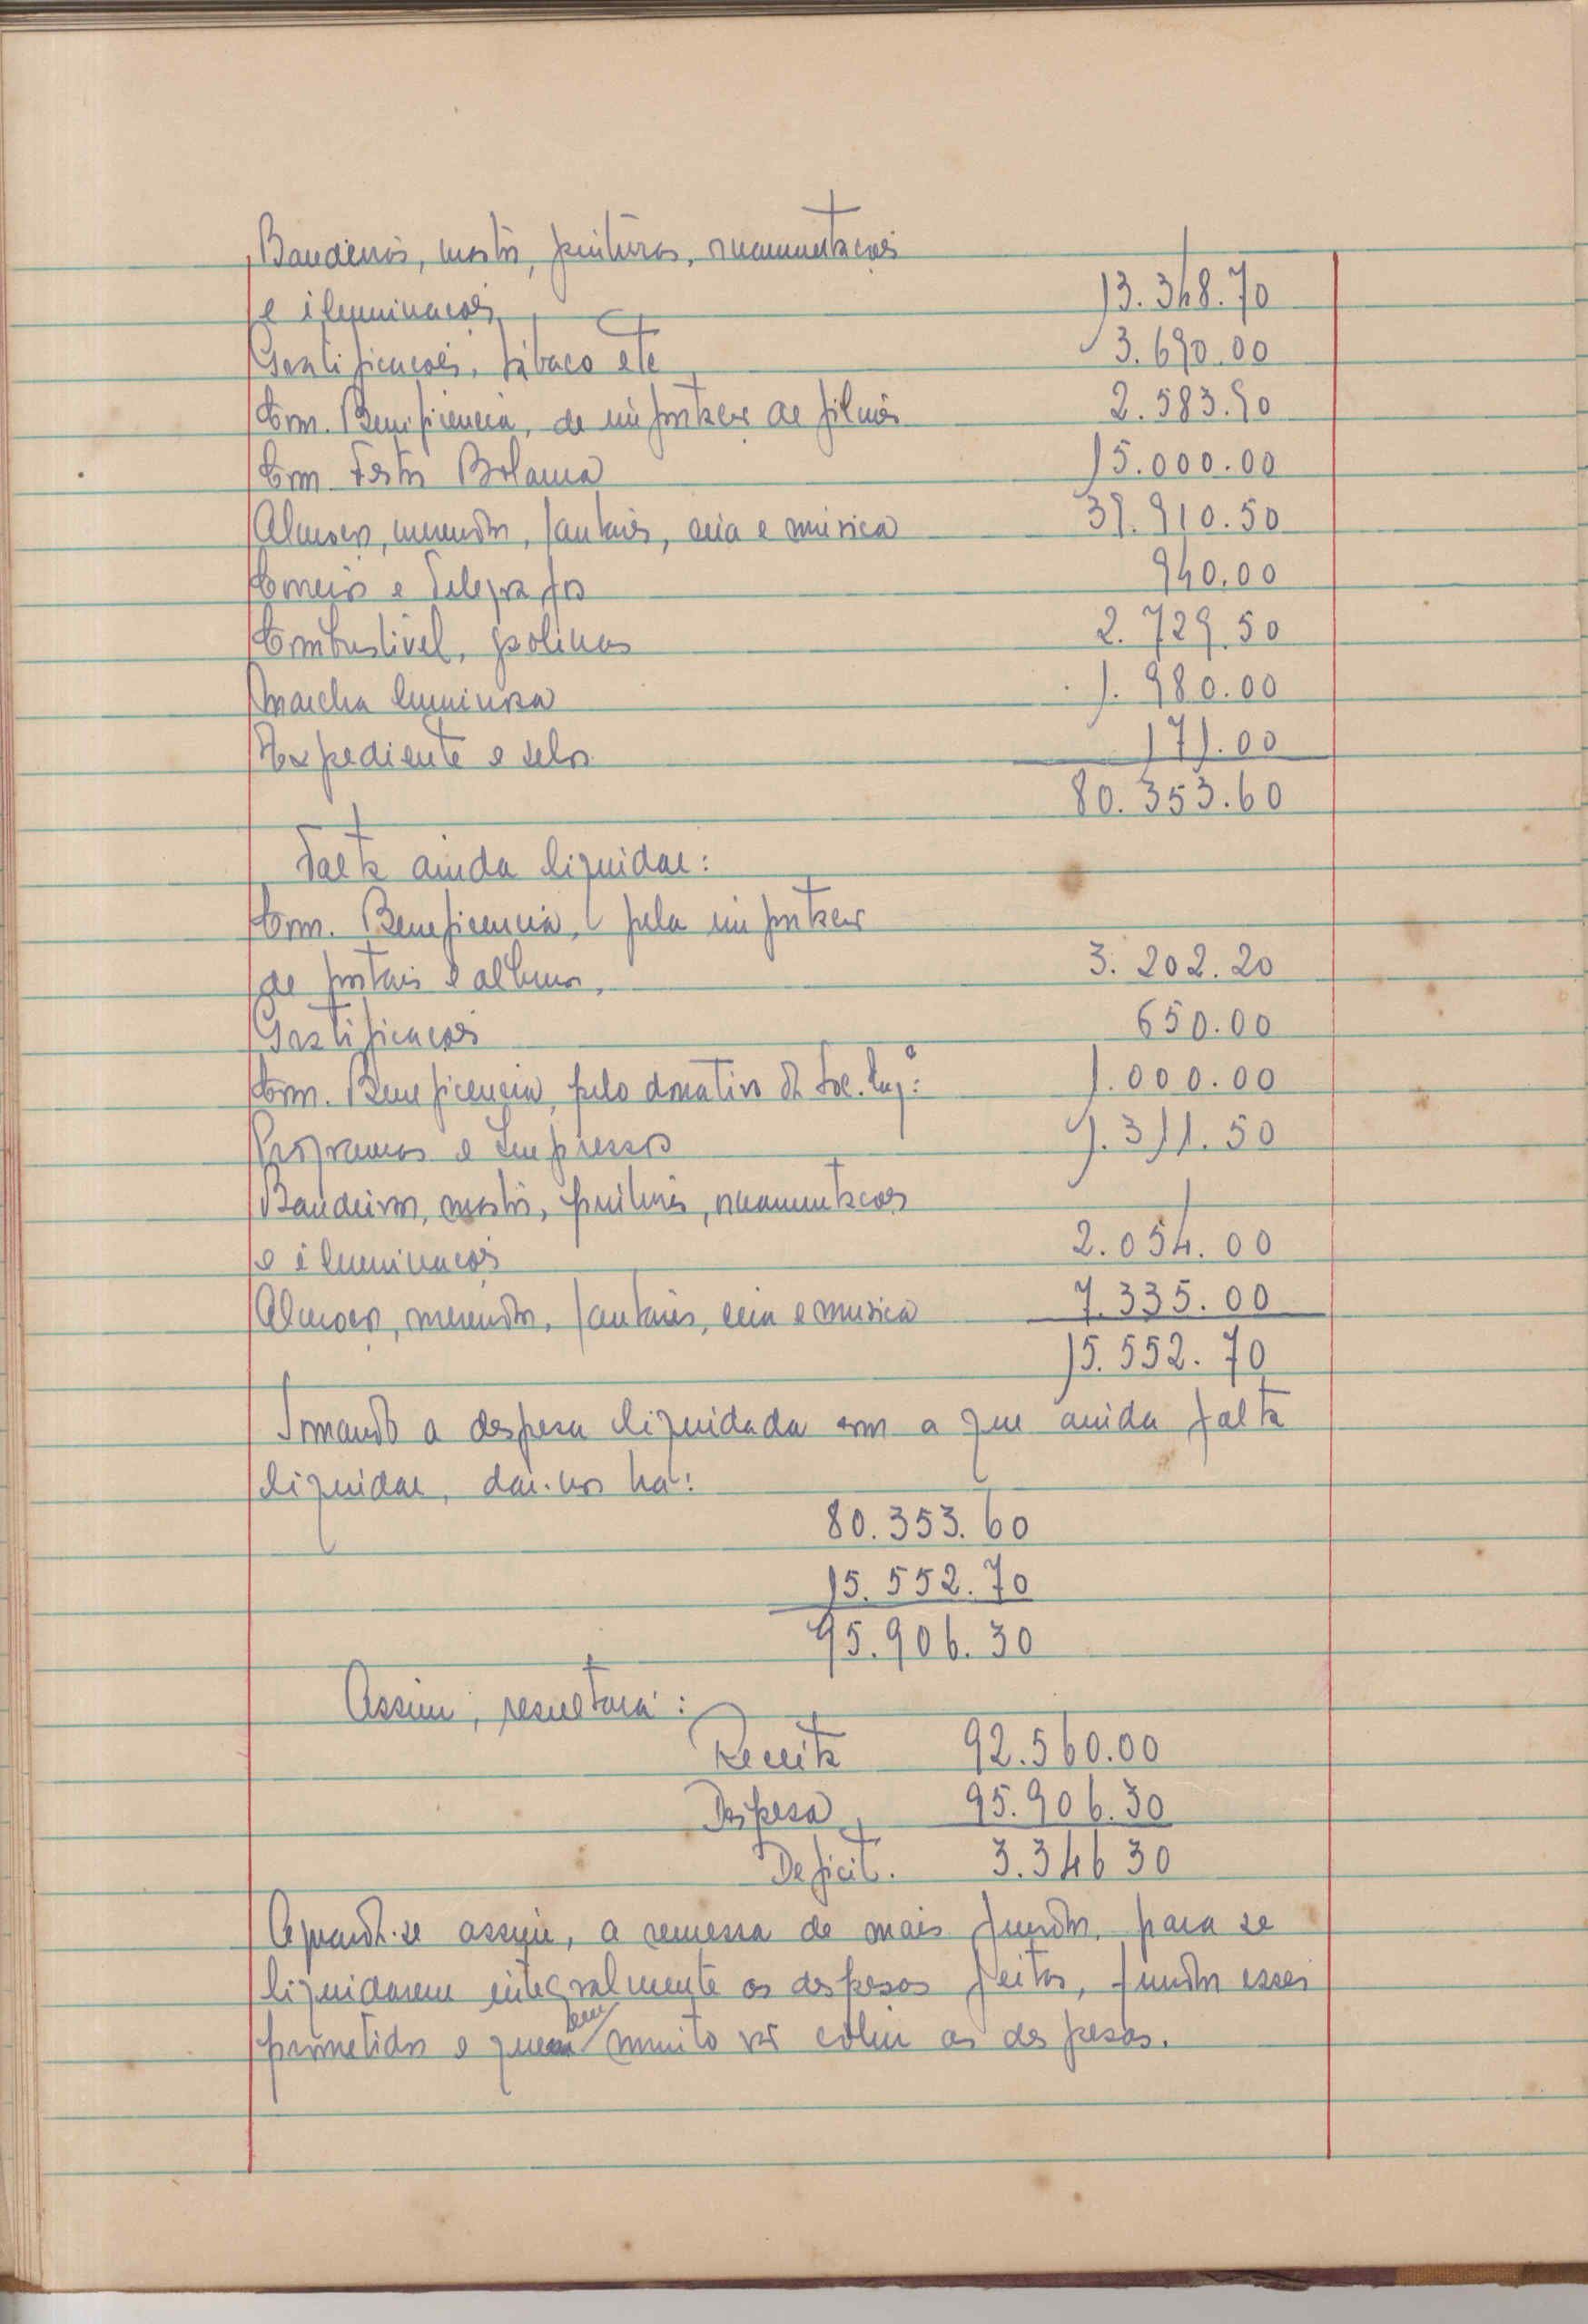 Bandeiras, mastros, pinturas, ornamentações
e iluminações 13.348.70
Gratificações, tabaco etc 3.690.00
Com. Beneficencia, de importação de filmes 2.583.90
Com. Festas Bolama 15.000.00
Almoços, merendas, jantares, ceia e música 39.910.50
Correios e Telegrafos 940.00
Combustivel, gasolinas 2.729.50
Marcha luminosa 1.980.00
Expediente e selos 171.00
80.353.60
Falta ainda liquidar:
Com. Beneficencia, pela importação
de postais e albuns, 3.202.20
Gratificações 650.00
Com. Beneficencia, pelo donativo da Soc. 1.000.00
Programas e Impressos 1.311.50
Bandeiras, mastros, pinturas, ornamentações
e iluminações 2.054.00
Almoços, merendas, jantares, ceia e musica 7.335.00
15.552.70
Somando a despesa liquidada com a que ainda falta
liquidar, dar-nos há:
80.353.60
15.552.70
95.906.30
Assim, resultará:
Receita 92.560.00
Despesa 95.906.30
Deficit. 3.346 30
Aguarda-se assim, a remessa de mais fundos, para se
liquidarem integralmente as despesas feitas, fundos esses
prometidos e que em muito vão cobrir as despesas.